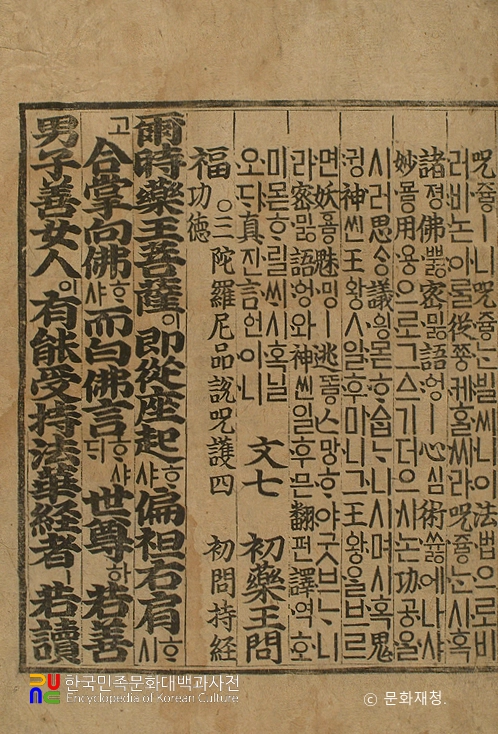 呪쥬ᇢㅣ니呪쥬ᇢᄂᆞᆫ빌씨니이法법으로비
러비논이ᄅᆞᆯ從쪼ᇰ케ᄒᆞᆯ씨라呪쥬ᇢᄂᆞᆫ시혹
諸졍佛뿌ᇙ密미ᇙ語ᅌᅥᆼㅣ心심術쓔ᇙ에나샤
妙묘ᇢ用용ᄋᆞ로그ᅀᅳ기더으시논功공ᄋᆞᆯ
시러思ᄉᆞᆼ議읭몯ᄒᆞᅀᆞᆸᄂᆞ니시며시혹鬼
귕神씬王왕ㅅ일후미니그王왕ᄋᆞᆯ브르
면妖ᅙᅭᇢ魅밍ㅣ逃또ᇢ망ᄒᆞ야굿브ᄂᆞ니
라密미ᇙ語ᅌᅥᆼ와神씬일후믄翻펀譯역호
미몯ᄒᆞ릴ᄊᆡ시혹닐
오ᄃᆡ真진言언이니 文七 初藥王問
福功德 ○三陀羅尼品說呪護四 初問持經
爾時藥王菩薩이即從座起ᄒᆞ샤偏袒右肩ᄒᆞ시
고合掌向佛ᄒᆞ샤而白佛言ᄒᆞ샤ᄃᆡ世尊하若善
男子善女人이有能受持法華經者ㅣ若讀
한국민족문화대백과사전
Encyclopedia of Korean Culture
© 문화재청.